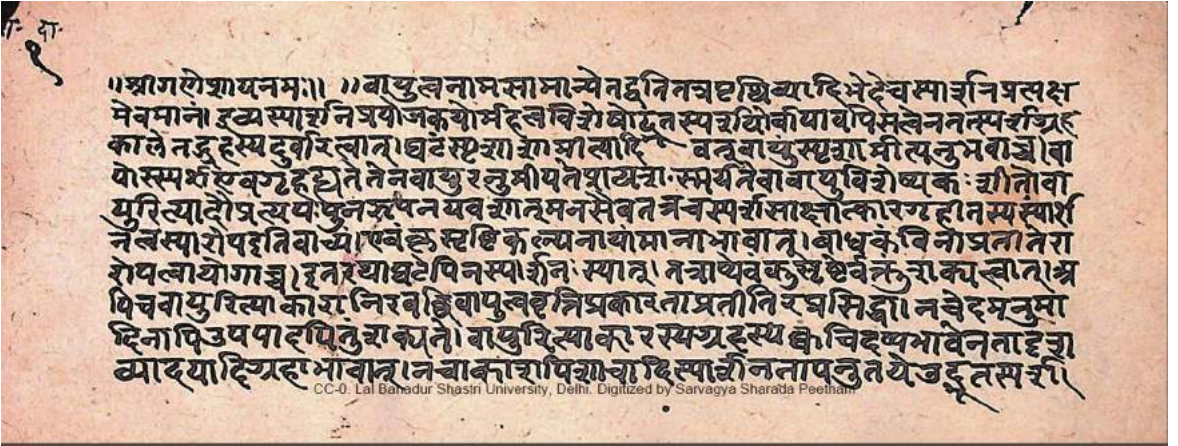 वा- प्र-
१
॥श्रीगणेशायनमः॥ ॥वायुत्वनामसामान्येतद्वतितत्रपृथिव्यादिभेदेचस्पार्शनप्रत्यक्ष
मेवमानं। द्रव्यस्पार्शनप्रयोजकयोर्महत्वविशेषोद्भूतस्पर्शयोर्वायावपिसत्वेनतत्स्पर्शग्रह
कालेतद्ग्रहस्यदुर्वारत्वात्। घटंस्पृशामीत्यादि वत्वायुंस्पृशामीत्यनुभवाच्च। वा
योस्स्पर्शएवगृह्यतेतेनवायुरनुमीयते स्मर्यतेवावायुविशेष्यकः शीतोवा
युरित्यादौप्रत्ययः मनसैवतत्रचस्पर्शसाक्षात्कारगृहीतस्यस्पार्श
नत्वस्यारोपइतिवाच्यं। एवंकॢप्तकल्पनायांमानाभावात्। बाधकंविनाप्रतीतेरा
रोपत्वायोगाच्च। इतरथाघटेपिनस्पार्शनंस्यात्। तत्राप्येवं वक्तुंशक्यत्वात्। अ
पिचवायुरित्याकारानिरवछिन्नवायुत्ववृत्तिप्रकारताप्रतीतिरप्रसिद्धा। नचेदमनुमा
दिनापिउपपादयितुंशक्यते। वायुरित्याकारस्यग्रहस्यक्वचिदप्यभावेनतादृश
व्याप्त्यादिग्रहाभावात्। नचाकाशपिशाचादिस्पार्शनतापनुतयेउद्भूतस्पर्श।
CC-0. Lal Bahadur Shastri University, Delhi. Digitized by Sarvagya Sharada Peetham